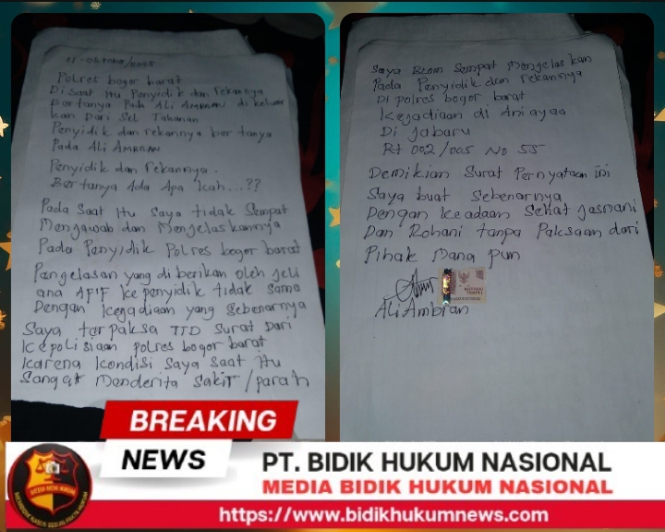 17-Oktober/2025
Polres bogor barat
Disaat itu Penyidik dan rekannya
Bertanya Pada Ali Ambran di keluar
kan Dari Sel Tahanan
Penyidik dan rekannya bertanya
Pada Ali Ambran
Penyidik dan rekannya.
Bertanya Ada Apa kah...??
Pada Saat itu Saya tidak Sempat
Mengawab dan Mengelaskannya
Pada Penyidik Polres bogor barat
Pangelasan yang di berikan oleh
ana APIF ke penyidik tidak Sama
Dengan kegadiaan yang Sebenarnya
Saya terpaksa TTD Surat Dari
kepolisiaan polres bogor barat
karena kondisi Saya Saat itu
Sangat Menderita Sakit /parah
Saya Belom Sempat Mengelaskan
Pada Penyidik dan rekannya
Di polres bogor barat
kegadiaan di Aniayaa
Di Jabaru
RT 002/005 No 55
Demikian Surat Pernyataan ini
Saya buat Sebenarnya
Dengan keadaan Sehat Jasmani
Dan Rohani tanpa Paksaan dari
Pihak Mana pun
Ali Ambran
BREAKING
NEWS
PT. BIDIK HUKUM NASIONAL
MEDIA BIDIK HUKUM NASIONAL
https://www.bidikhukumnews.com